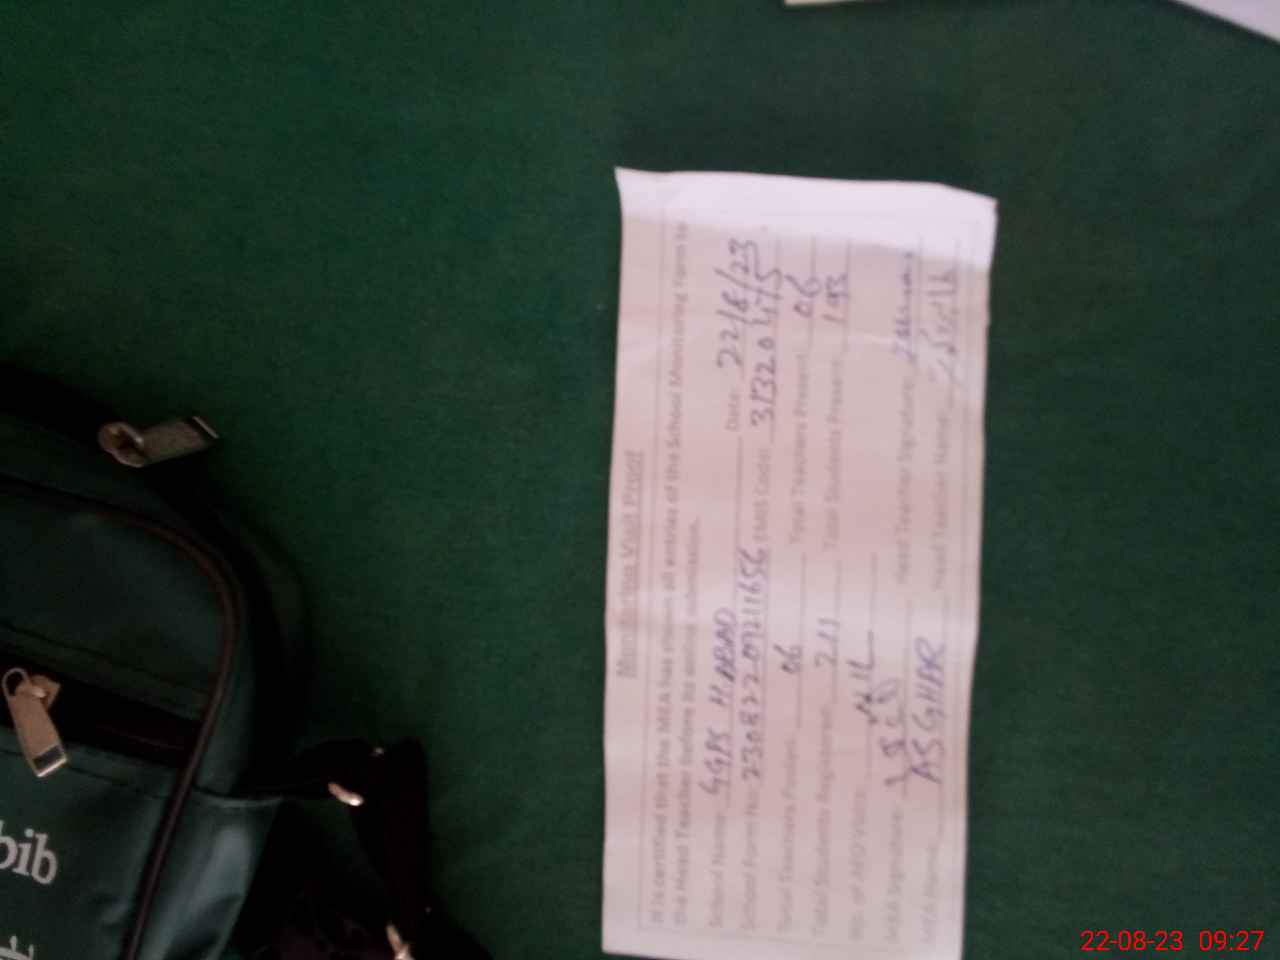 Monitoring Visit Proof
It is certified that the MEA has shown all entries of the School Monitoring Form to
the Head Teacher before its online submission.
School Name: GGPS H.ABAD Date: 22/8/23
School Form No: 230822-09211656 EMIS Code: 31320475
Total Teachers Posted: 06 Total Teachers Present: 06
Total Students Registered: 211 Total Students Present: 193
No. of AEO Visits: NIL
MEA Signature: Head Teacher Signature:
MEA Name: ASGHAR Head Teacher Name:
bib
22-08-23 09:27